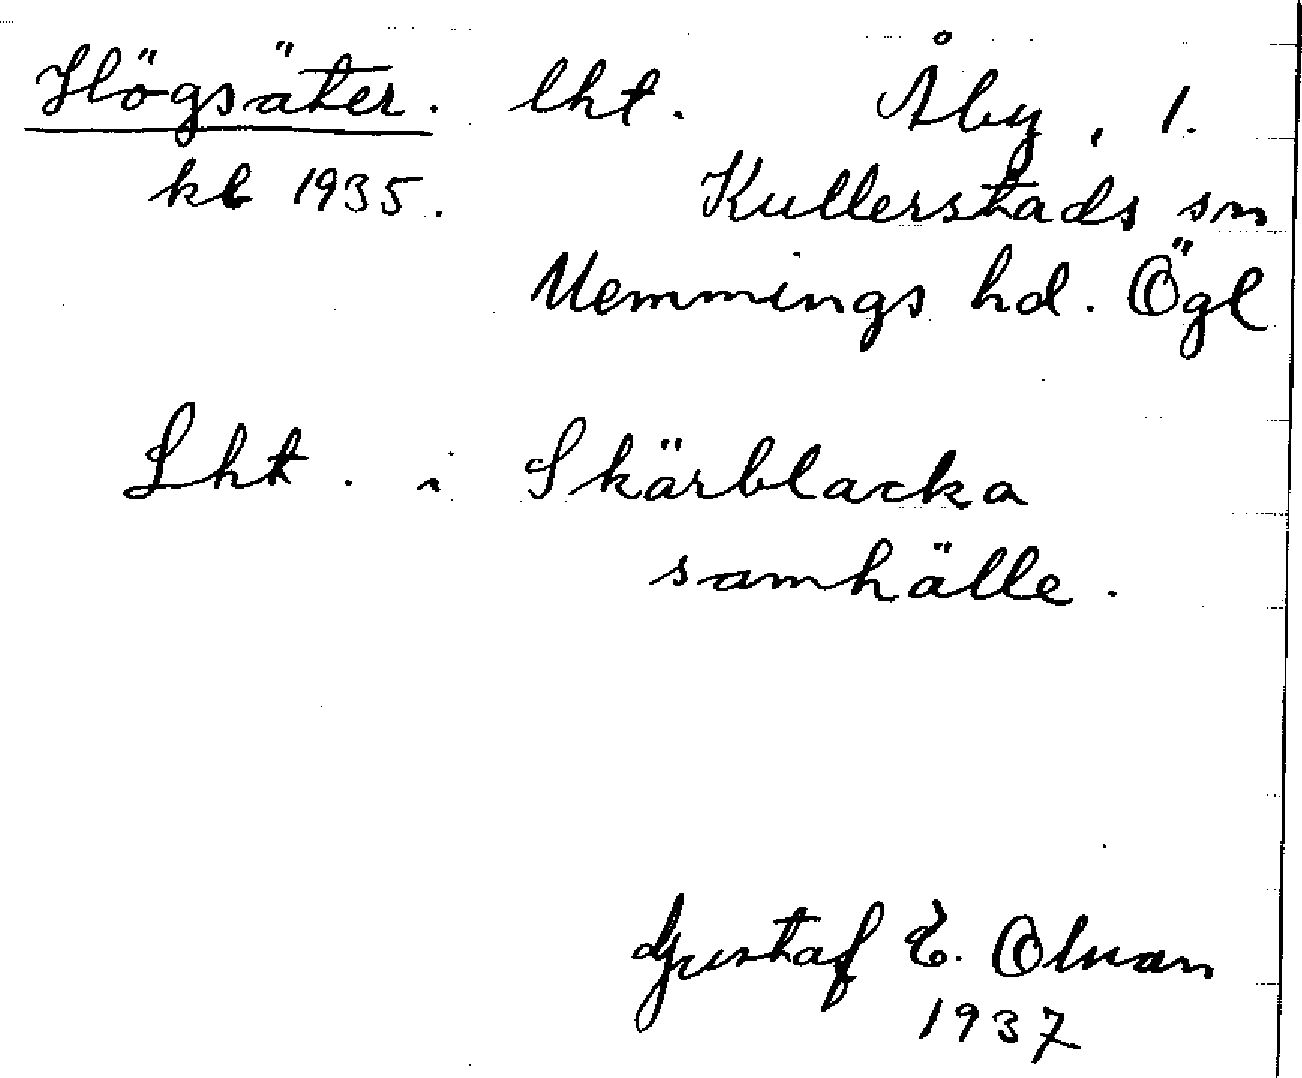 Högsäter. lht. Åby, 1.
kb 1935. Kullerstads sn
Memmings hd. Ögl
Lht. i Skärblacka
samhälle.
Gustaf E. Olman
1937